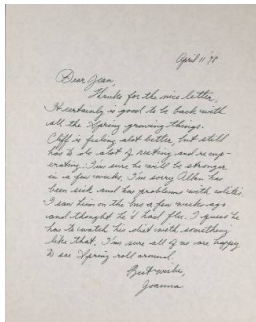 April 11 '78
Dear Jean,
Thanks for the nice letter,
It certainly is good to be back with
all the Spring growing things.
Cliff is feeling alot better, but still
has to do alot of resting and recup-
erating. I'm sure he will be stronger
in a few weeks. I'm sorry Allan has
been sick and has problems with colitis.
I saw him on the bus a few weeks ago
and thought he'd had flu. I guess he
has to watch his diet with something
like that. I'm sure all of us are happy
to see Spring roll around.
Best wishes,
Joanna